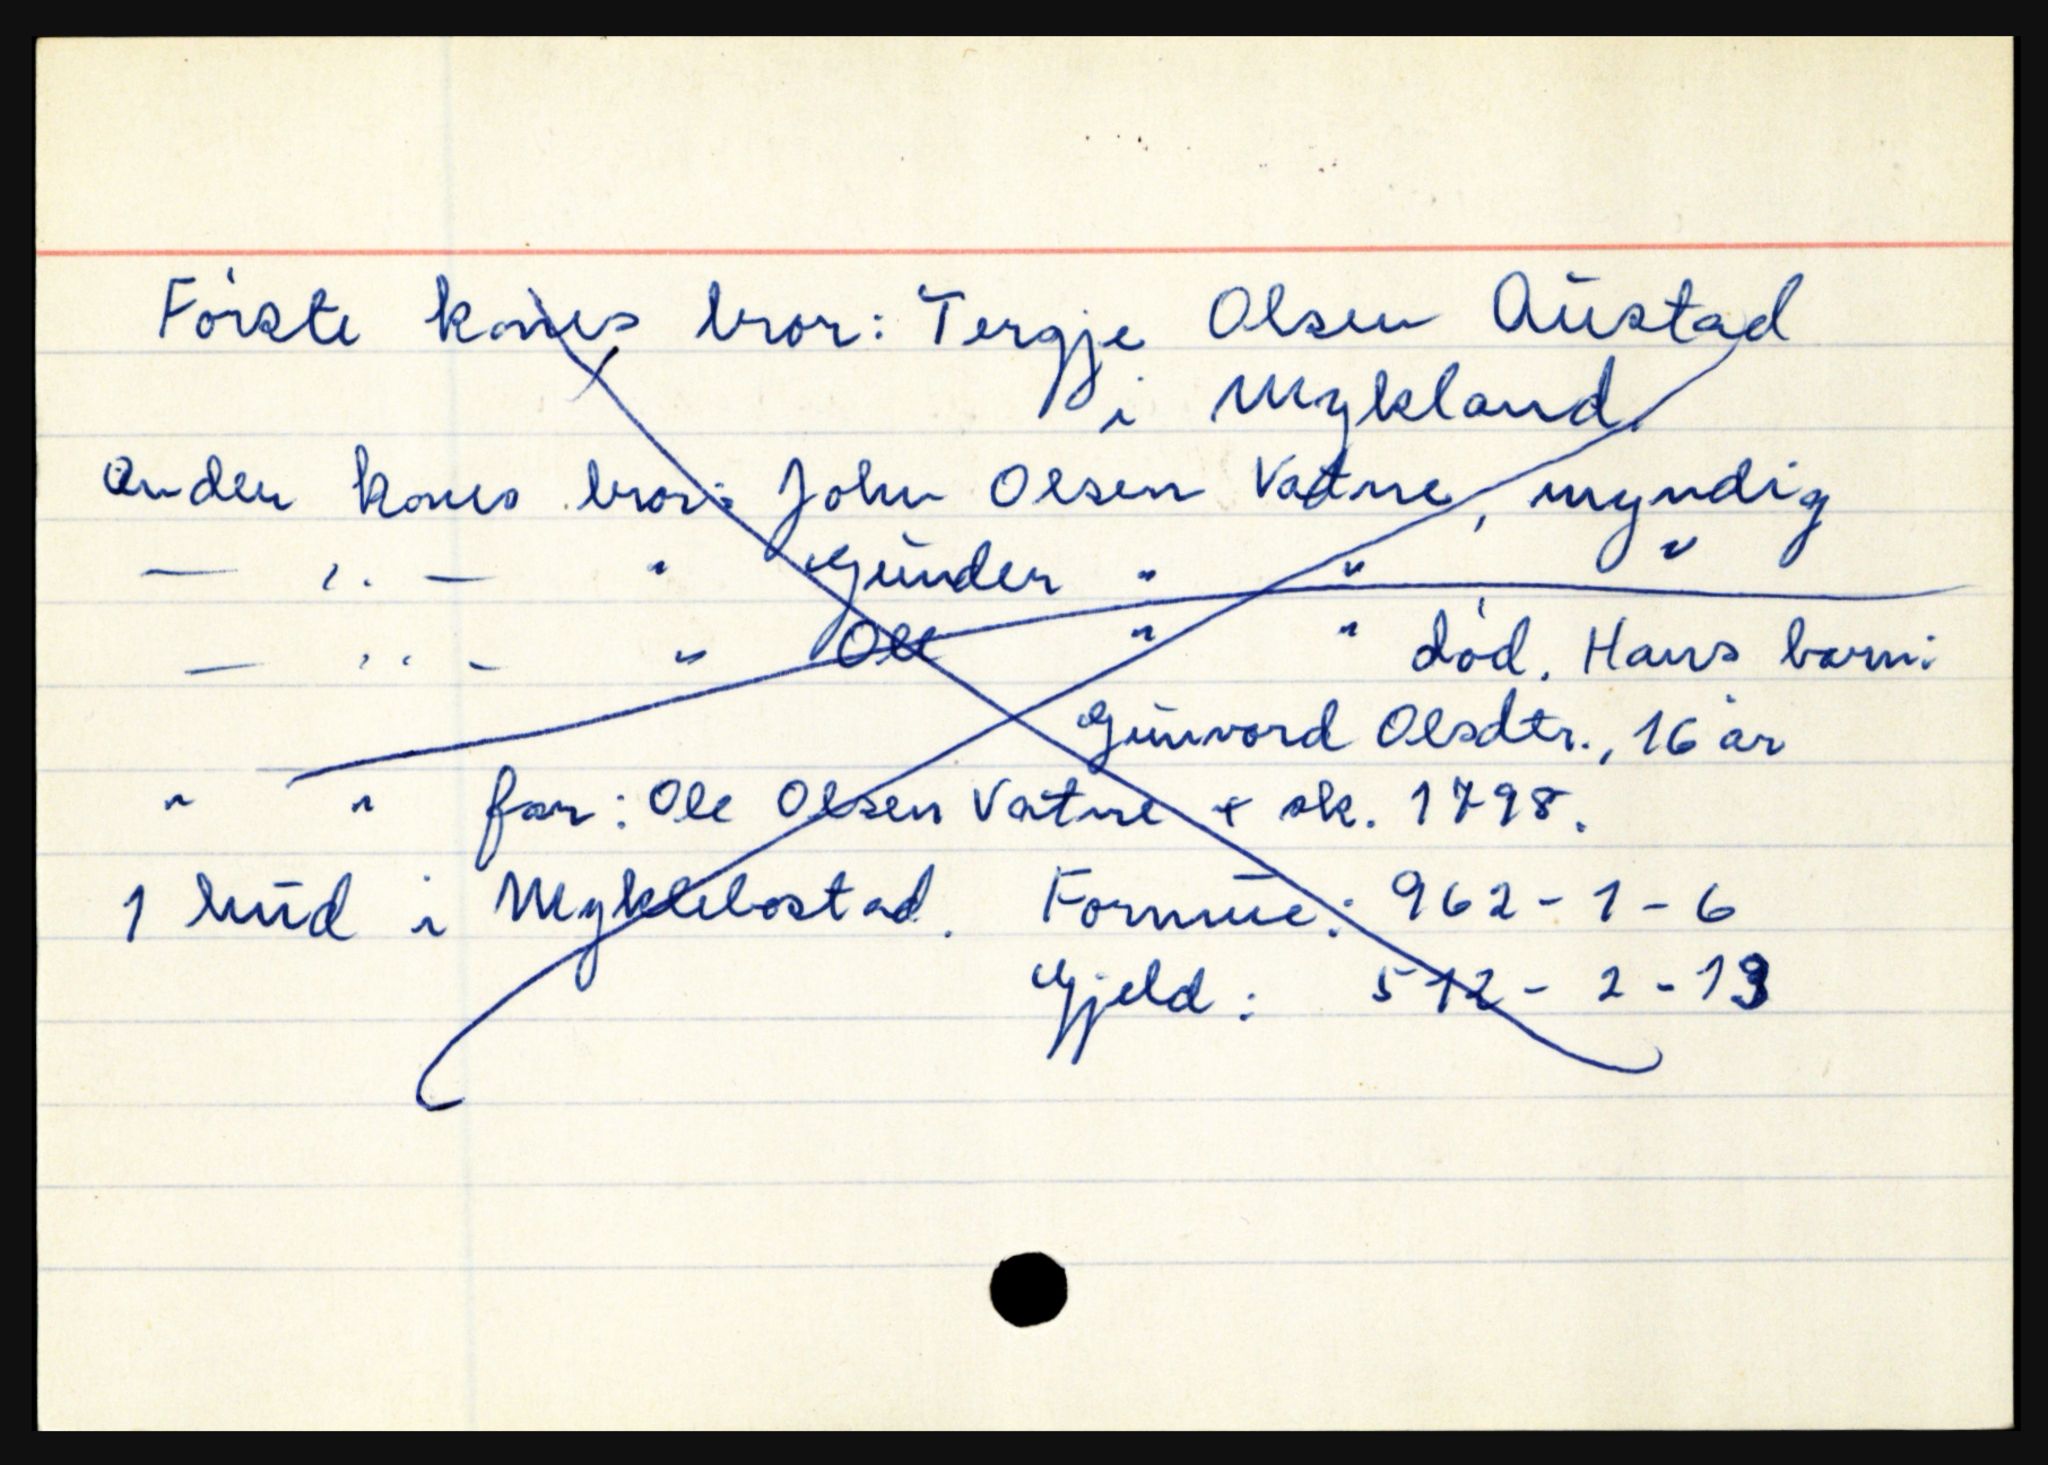 Første kones bror: Tergje Olsen Austad
i Mykland
Anden kones bror: John Olsen Vatne, myndig
— ,, — " Gunder " " "
— ,, — " Ole " " død. Hans barn:
Gunvord Olsdtr., 16 år
" " far: Ole Olsen Vatne + sk. 1798.
1 hud i Myklebostad. Formue: 962-1-6
Gjeld: 512-2-13